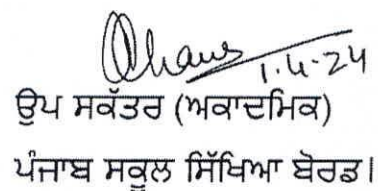 1.4.24
ਉਪ ਸਕੱਤਰ (ਅਕਾਦਮਿਕ)
ਪੰਜਾਬ ਸਕੂਲ ਸਿੱਖਿਆ ਬੋਰਡ।